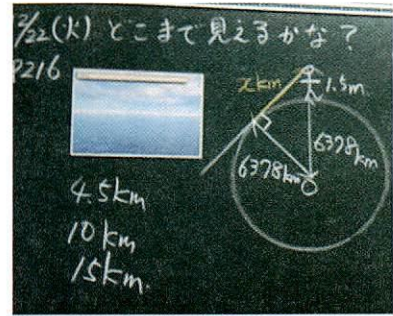 2/22(火)どこまで見えるかな?
P216
xkm
1.5m
6378km
6378km
O
4.5km
10km
15km.